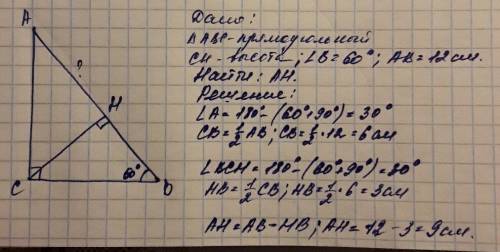 Дано:
ΔABC-прямоугольный
CH-высота; ∠B=60°; AB=12см.
Найти: AH.
Решение:
∠A=180°-(60°+90°)=30°
CB=½AB; CB=½·12=6см
∠BCH=180°-(60°+90°)=30°
HB=½CB; HB=½·6=3см
AH=AB-HB; AH=12-3=9см.
A
?
H
C
60°
B